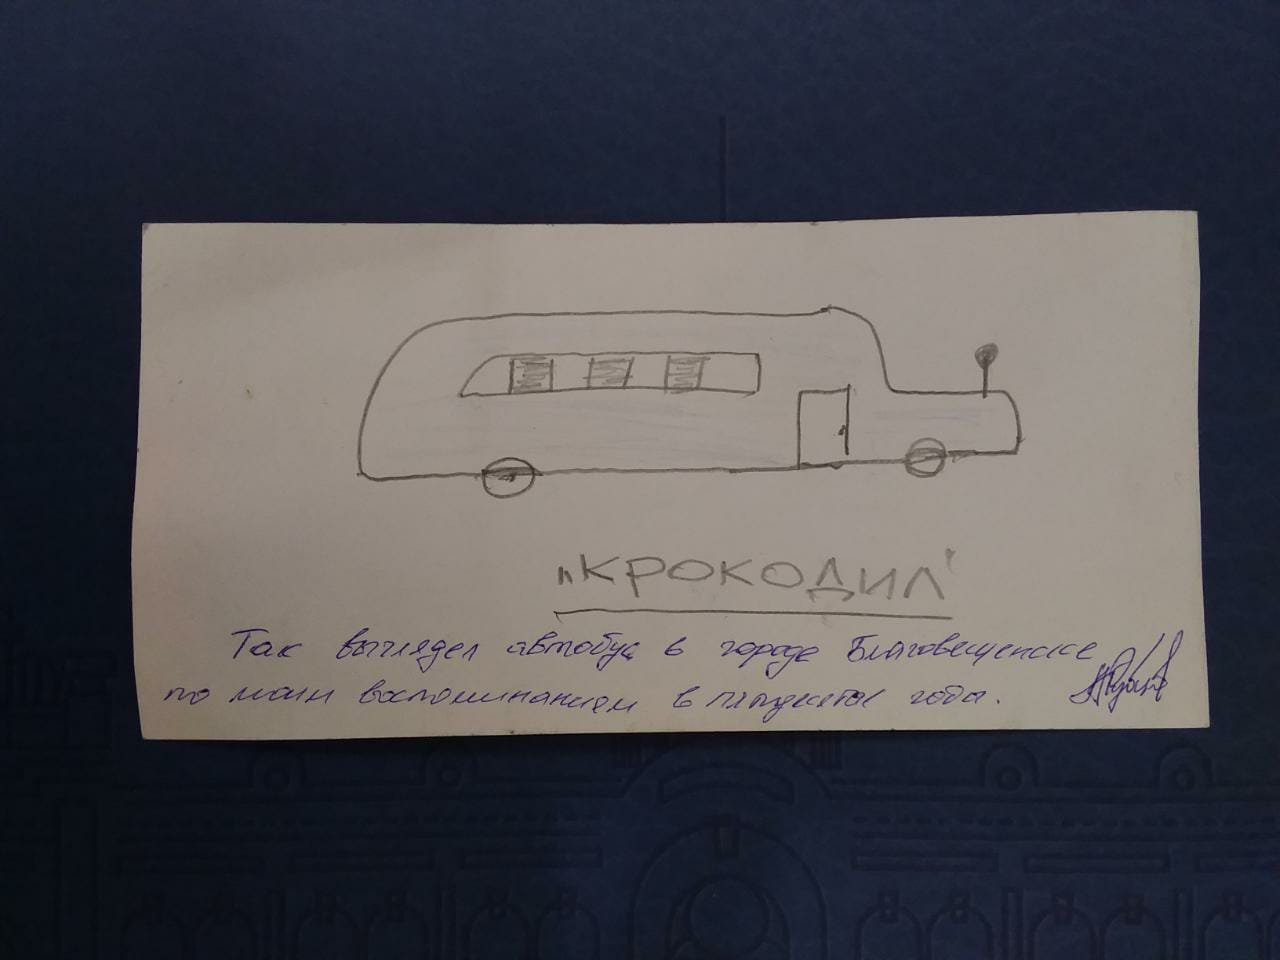 „КРОКОДИЛ"
Так выглядел автобус в городе Благовещенске
по моим воспоминаниям в пятидесятые годы.